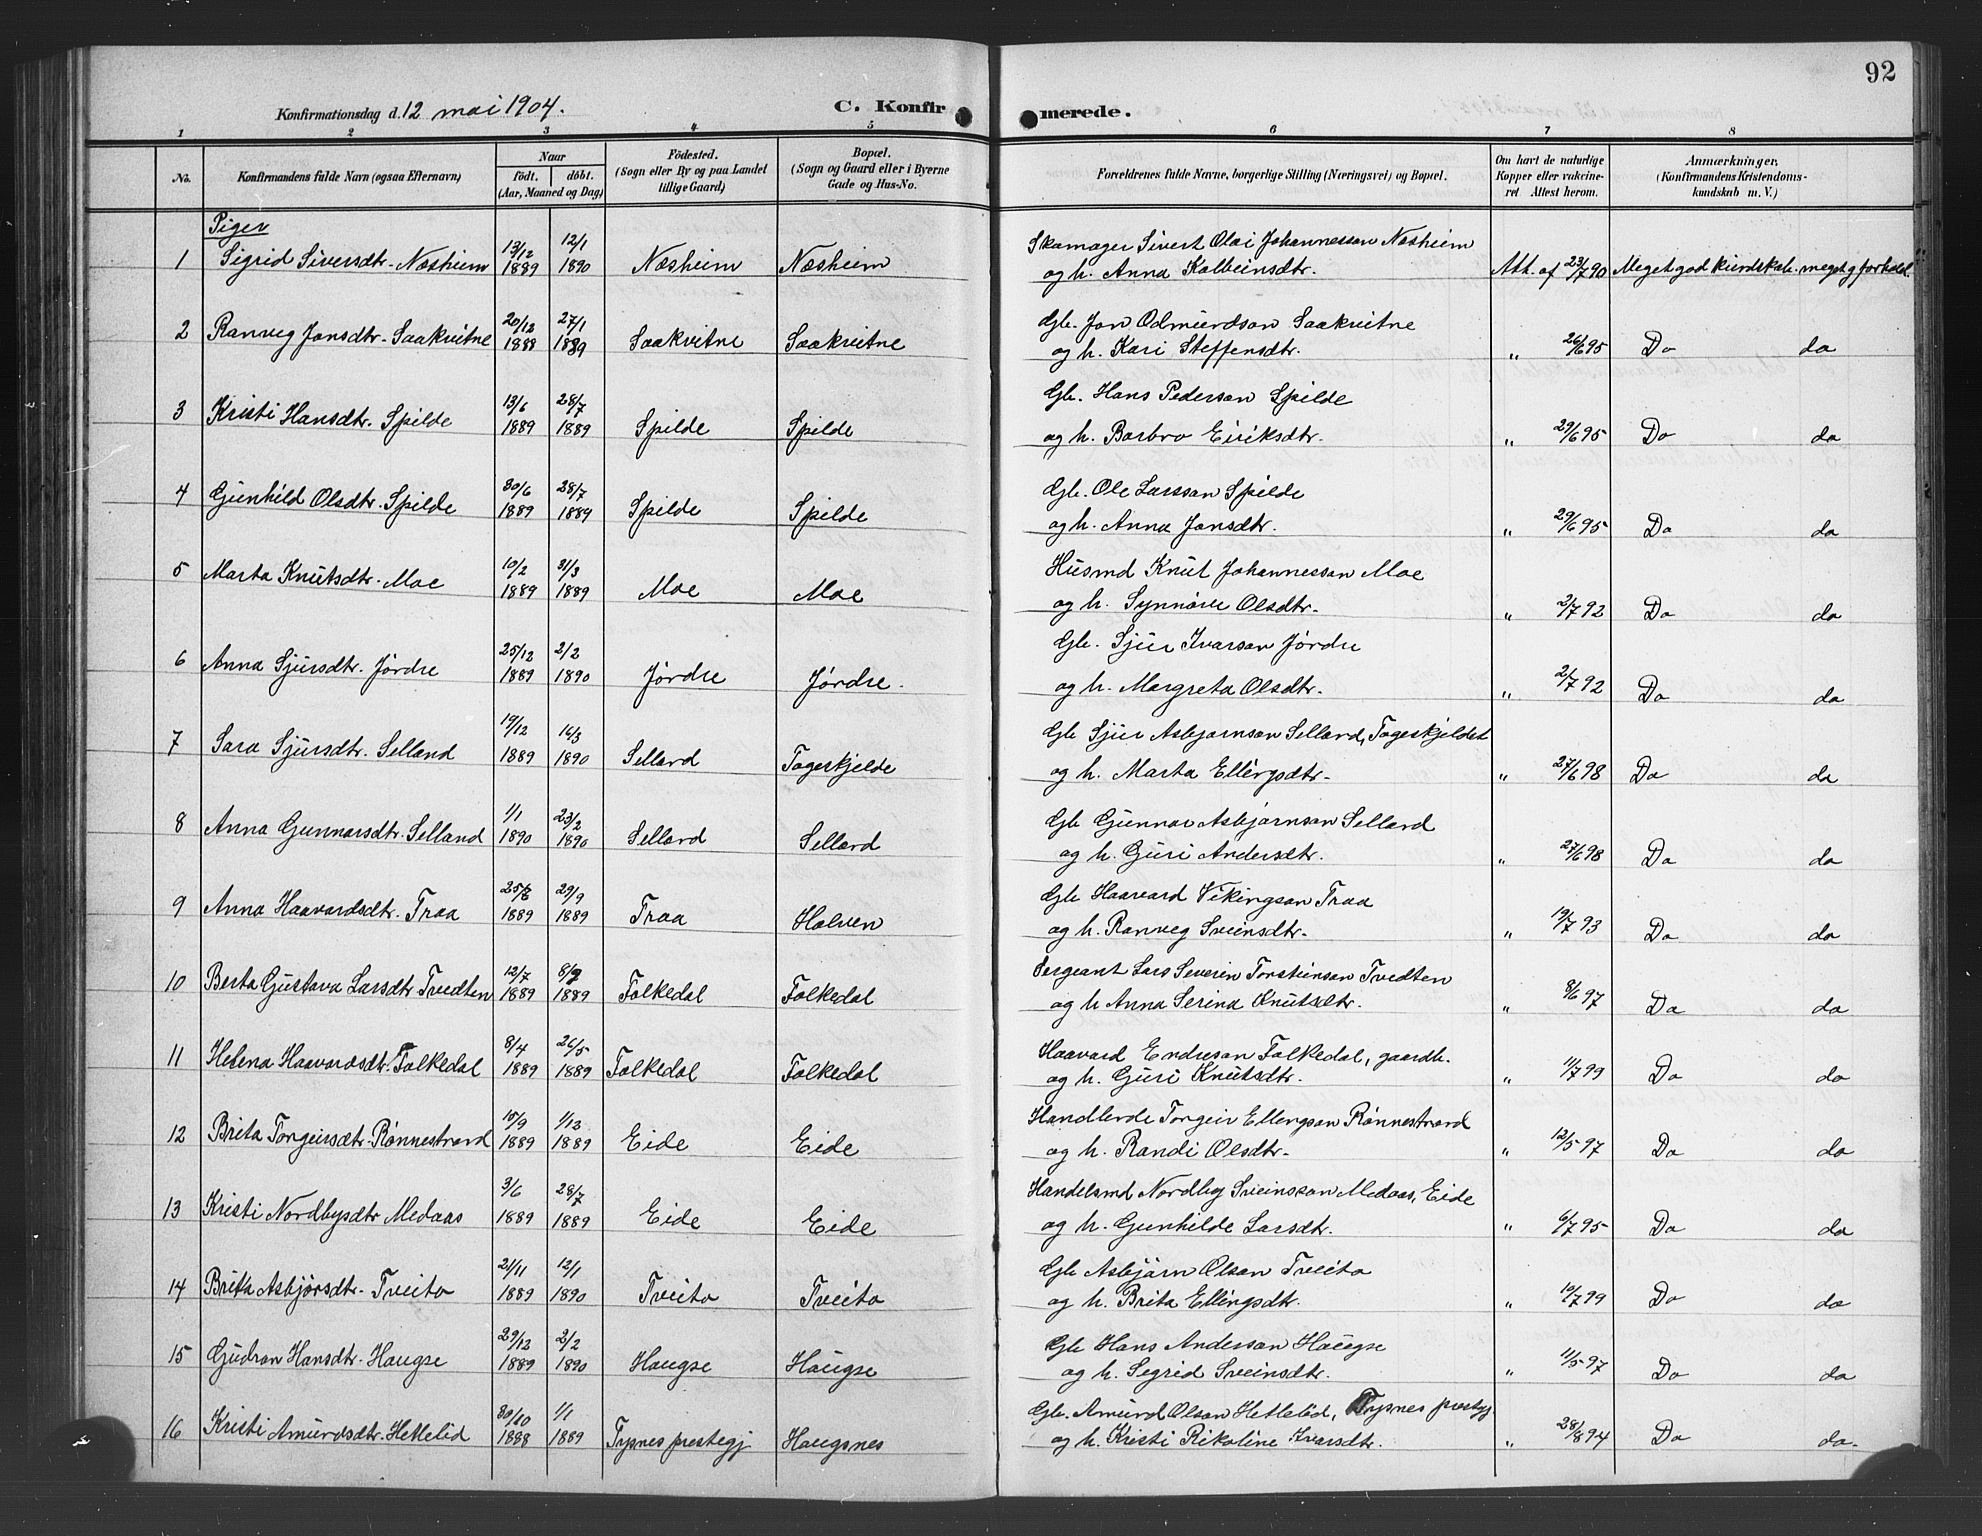 92
Konfirmationsdag d. 12 mai 1904. C. Konfirmerede.
1 2 3 4 5 6 7 8
No. Konfirmandens fulde Navn (ogsaa Efternavn) Naar født. døbt. (Aar, Maaned og Dag) Fødested. (Sogn eller By og paa Landet tillige Gaard) Bopæl. (Sogn og Gaard eller i Byerne Gade og Hus-No. Forældrenes fulde Navne, borgerlige Stilling (Næringsvei) og Bopæl. Om havt de naturlige Kopper eller vakcineret Attest herom. Anmærkninger. (Konfirmandens Kristendomskundskab m. V.)
Piger
1 Sigrid Siversdtr. Næsheim 13/12 1889 12/1 1890 Næsheim Næsheim Skomager Sivert Olai Johannesson Næsheim
og h. Anna Kolbeinsdtr. Att. af 23/7 90 Meget god kundskab. meget g forhold.
2 Ranveig Jonsdtr. Saakvitne 20/12 1888 27/1 1889 Saakvitne Saakvitne Gb. Jon Odmundson Saakvitne
og h. Kari Steffensdtr. " 26/6 95 Do do
3 Kristi Hansdtr. Spilde 13/6 1889 28/7 1889 Spilde Spilde Gb. Hans Pederson Spilde
og h. Barbro Eiriksdtr. " 29/6 95 Do do
4 Gunhild Olsdtr. Spilde 30/6 1889 28/7 1889 Spilde Spilde Gb. Ole Larsson Spilde
og h. Anna Jonsdtr. " 29/6 95 Do do
5 Marta Knutsdtr. Moe 10/2 1889 31/3 1889 Moe Moe Husmd Knut Johannesson Moe
og h. Synnøve Olsdtr. " 2/7 92 Do do
6 Anna Sjursdtr. Jørdre 25/12 1889 2/2 1890 Jørdre Jørdre. Gb. Sjur Ivarson Jørdre
og h. Margreta Olsdtr. " 2/7 92 Do do
7 Sara Sjursdtr. Selland 19/12 1889 16/3 1890 Selland Togeskjelde Gb Sjur Asbjørnson Selland, Togeskjeldet
og h. Marta Ellingsdtr. " 27/6 98 Do do
8 Anna Gunnarsdtr. Selland 1/1 1890 23/2 1890 Selland Selland Gb Gunnar Asbjørnson Selland
og h. Guri Andersdtr. " 27/6 98 Do do
9 Anna Haavardsdtr. Traa 1889 29/9 1889 Traa Holven Gb Haavard Vikingson Traa
og h. Ranveg Sveinsdtr. " 19/7 93 Do do
10 Berta Gustava Larsdtr Tvedten 12/7 1889 1889 Folkedal Folkedal Sergeant Lars Severin Torsteinson Tvedten
og h Anna Serina Knutsdtr. " 8/6 97 Do do
11 Helena Haavardsdtr. Folkedal 8/4 1889 26/5 1889 Folkedal Folkedal Haavard Endreson Folkedal, gaardb.
og h. Guri Knutsdtr. " 11/7 99 Do do
12 Brita Torgeirsdtr. Rønnestrand 15/9 1889 1/12 1889 Eide Eide Handlende Torgeir Ellingson Rønnestrand
og h. Randi Olsdtr. " 12/5 97 Do do
13 Kristi Nordbysdtr Medaas 3/6 1889 28/7 1889 Eide Eide Handelsmd Nordby Sveinsson Medaas, Eide
og h. Gunhilde Larsdtr. " 6/7 95 Do do
14 Brita Asbjørsdtr. Tveito 21/11 1889 12/1 1890 Tveito Tveito Gb Asbjørn Olson Tveito
og h. Brita Ellingsdtr. " 10/7 99 Do do
15 Gudron Hansdtr. Haugse 29/12 1889 2/2 1890 Haugse Haugse Gb Hans Anderson Haugse
og h. Segrid Sveinsdtr. " 11/5 97 Do do
16 Kristi Amundsdtr. Hetlelid 30/10 1888 1/1 1889 Tysnes prestegj Haugsnes Gb. Amund Olson Hetlelid, Tysnes prestgj.
og h. Kristi Rikoline Ivarsdtr. " 28/8 94 Do do.